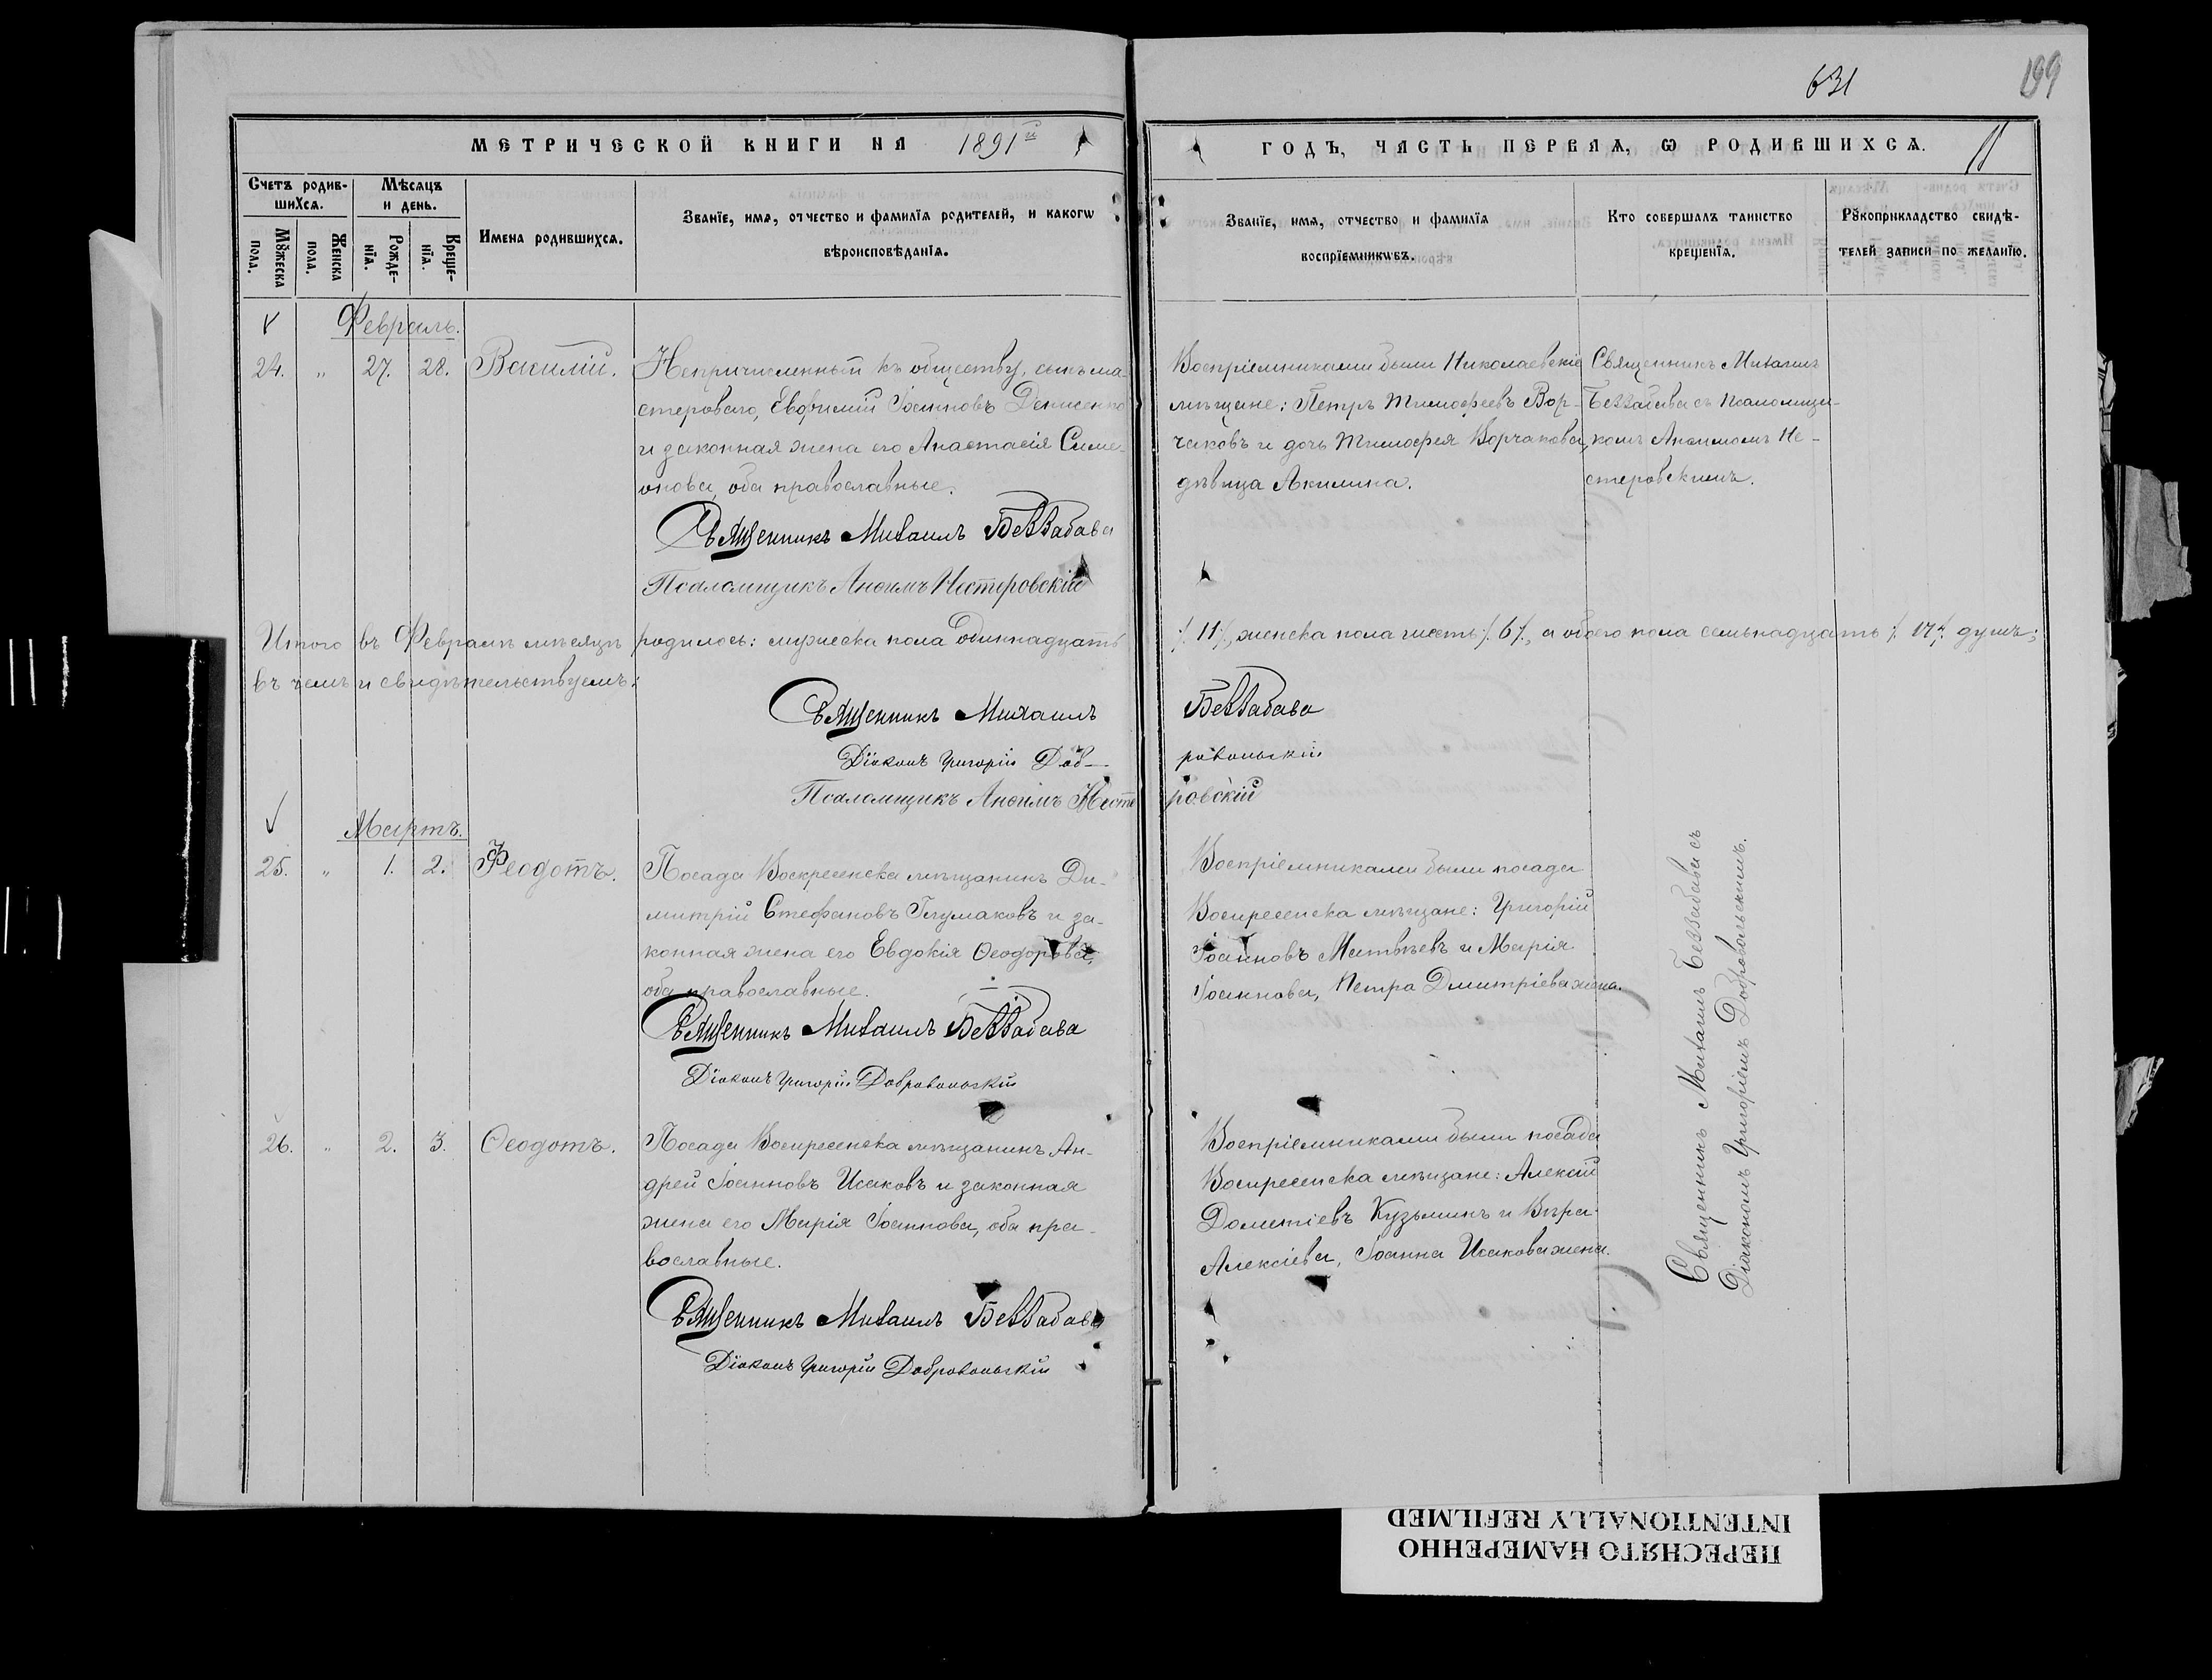 631
199
МЕТРИЧЕСКОЙ КНИГИ НА 1891й
ГОДЪ, ЧАСТЬ ПЕРВАЯ, Ѡ РОДИВШИХСЯ.
11
Счетъ родив-
шихся.
Мѣсяцъ
и день.
Мꙋжеска
пола.
Женска
пола.
Рожде-
нїя.
Креще-
нїя.
Имена родившихся.
Званїе, имя, отчество и фамилїя родителей, и какогѡ
вѣроисповѣданїя.
Званїе, имя, отчество и фамилїя
воспрїемникѡвъ.
Кто совершалъ таинство
крещенїя.
Рꙋкоприкладство свидѣ-
телей записи по желанїю.
Февраль.
24. " 27. 28. Василій.
Непричисленный къ обществу, сынъ ма-
стероваго, Евфимій Іоанновъ Денисенко
и законная жена его Анастасія Симе-
онова, оба православные.
Священникъ Михаилъ Беззабава
Псаломщикъ Анѳимъ Нестеровскій
Воспріемниками были Николаевскіе
мѣщане: Петръ Тимофеевъ Вор-
чаковъ и дочь Тимофея Ворчакова,
дѣвица Акилина.
Священникъ Михаилъ
Беззабава съ псаломщи-
комъ Анѳимомъ Не-
стеровскимъ.
Итого въ Февралѣ мѣсяцѣ родилось: мужеска пола одиннадцать /. 11 /., женска пола шесть /. 6 /., а обоего пола семьнадцать /. 17 /. душъ;
въ чемъ и свидѣтельствуемъ:
Священникъ Михаилъ Беззабава
Діаконъ Григорій Доб-ровольскій
Псаломщикъ Анѳимъ Нестеровскій
Мартъ.
25. " 1. 2. Феодотъ.
Посада Воскресенска мѣщанинъ Ди-
митрій Стефановъ Глумаковъ и за-
конная жена его Евдокія Ѳеодорова,
оба православные.
Священникъ Михаилъ Беззабава
Діаконъ Григорій Добровольскій
Воспріемниками были посада
Воскресенска мѣщане: Григорій
Іоанновъ Матвѣевъ и Марія
Іоаннова, Петра Дмитріева жена.
26. " 2. 3. Ѳеодотъ.
Посада Воскресенска мѣщанинъ Ан-
дрей Іоанновъ Исаковъ и законная
жена его Марія Іоаннова, оба пра-
вославные.
Священникъ Михаилъ Беззабава
Діаконъ Григорій Добровольскій
Воспріемниками были посада
Воскресенска мѣщане: Алексій
Дометіевъ Кузьминъ и Вѣра
Алексіева, Іоанна Исакова жена.
Священникъ Михаилъ Беззабава съ
Діакономъ Григоріемъ Добровольскимъ.
ПЕРЕСНЯТО НАМЕРЕННО
INTENTIONALLY REFILMED